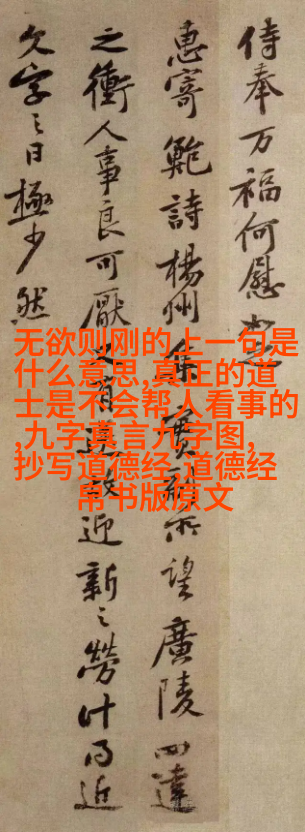 侍奉万福何慰
惠寄鲍詩楊州集實
望廣陵四達
之衝人事良可厭
迎新之勞計日近
欠字之日極少然
无欲则刚的上一句是
什么意思,真正的道
士是不会帮人看事的
,九字真言九字图,
抄写道德经,道德经
帛书版原文